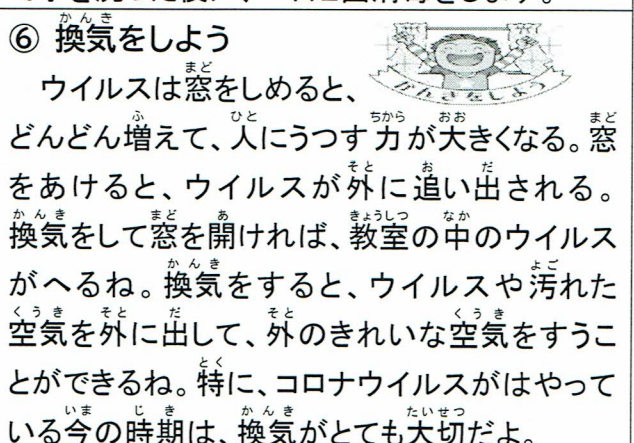 ⑥ 換気をしよう
かんきをしよう
ウイルスは窓をしめると、
どんどん増えて、人にうつす力が大きくなる。窓
をあけると、ウイルスが外に追い出される。
換気をして窓を開ければ、教室の中のウイルス
がへるね。換気をすると、ウイルスや汚れた
空気を外に出して、外のきれいな空気をすうこ
とができるね。特に、コロナウイルスがはやって
いる今の時期は、換気がとても大切だよ。